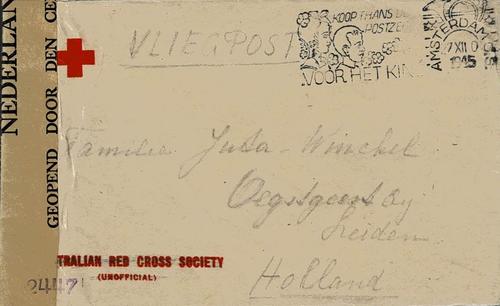 NEDERLAN
GEOPEND DOOR DEN CE
VLIEGPOST
KOOP THANS D
POSTZE
VOOR HET KIN
AMSTERDAM
7 XII
1945
Familie Juta-Winckel
Oegstgeest by
Leiden
Holland
TRALIAN RED CROSS SOCIETY
(UNOFFICIAL)